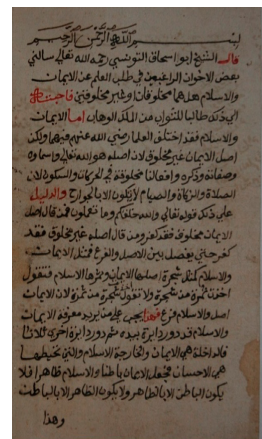 بسم الله الرحمن الرحيم
قال الشيخ ابو اسحاق التونسي رحمه الله تعالى سالني
بعض الاخوان الراغبين في طلب العلم عن الايمان
والاسلام هل هما مخلوقان او غير مخلوقين فاجبته
الى ذلك طالبا للثواب من الملك الوهاب اما الايمان
والاسلام فقد اختلف العلما رضي الله عنهم فيهما ولكن
اصل الايمان غير مخلوق لان اصله هو الله تعالى واسماوه
وصفاته وذكره وافعالنا مخلوقة هي الحركات والسكون لان
الصلاة والزكاة والصيام لا يكون الا بالجوارح والدليل
على ذلك قوله تعالى والله خلقكم وما تعملون فمن قال اصل
الايمان مخلوق فقد كفر ومن قال اصله غير مخلوق فقد
كفر حتى يفصل بين الاصل والفرع فمثل الايمان
والاسلام كمثل شجرة اصلها الايمان وثمرها الاسلام فتقول
اخذت ثمرة من شجرة ولا تقول شجرة من ثمرة لان الايمان
اصل والاسلام فرع فهذا يجب على من يريد معرفة الايمان
والاسلام قد دور دايرة بيده ثم دور دايرة اخرى ثلاثا
فالداخلة هي الايمان والخارجة الاسلام والتي تحيطها
هي الاحسان فجعل الايمان باطنا والاسلام ظاهرا فلا
يكون الباطن الا بالظاهر ولا يكون الظاهر الا بالباطن
وهذا